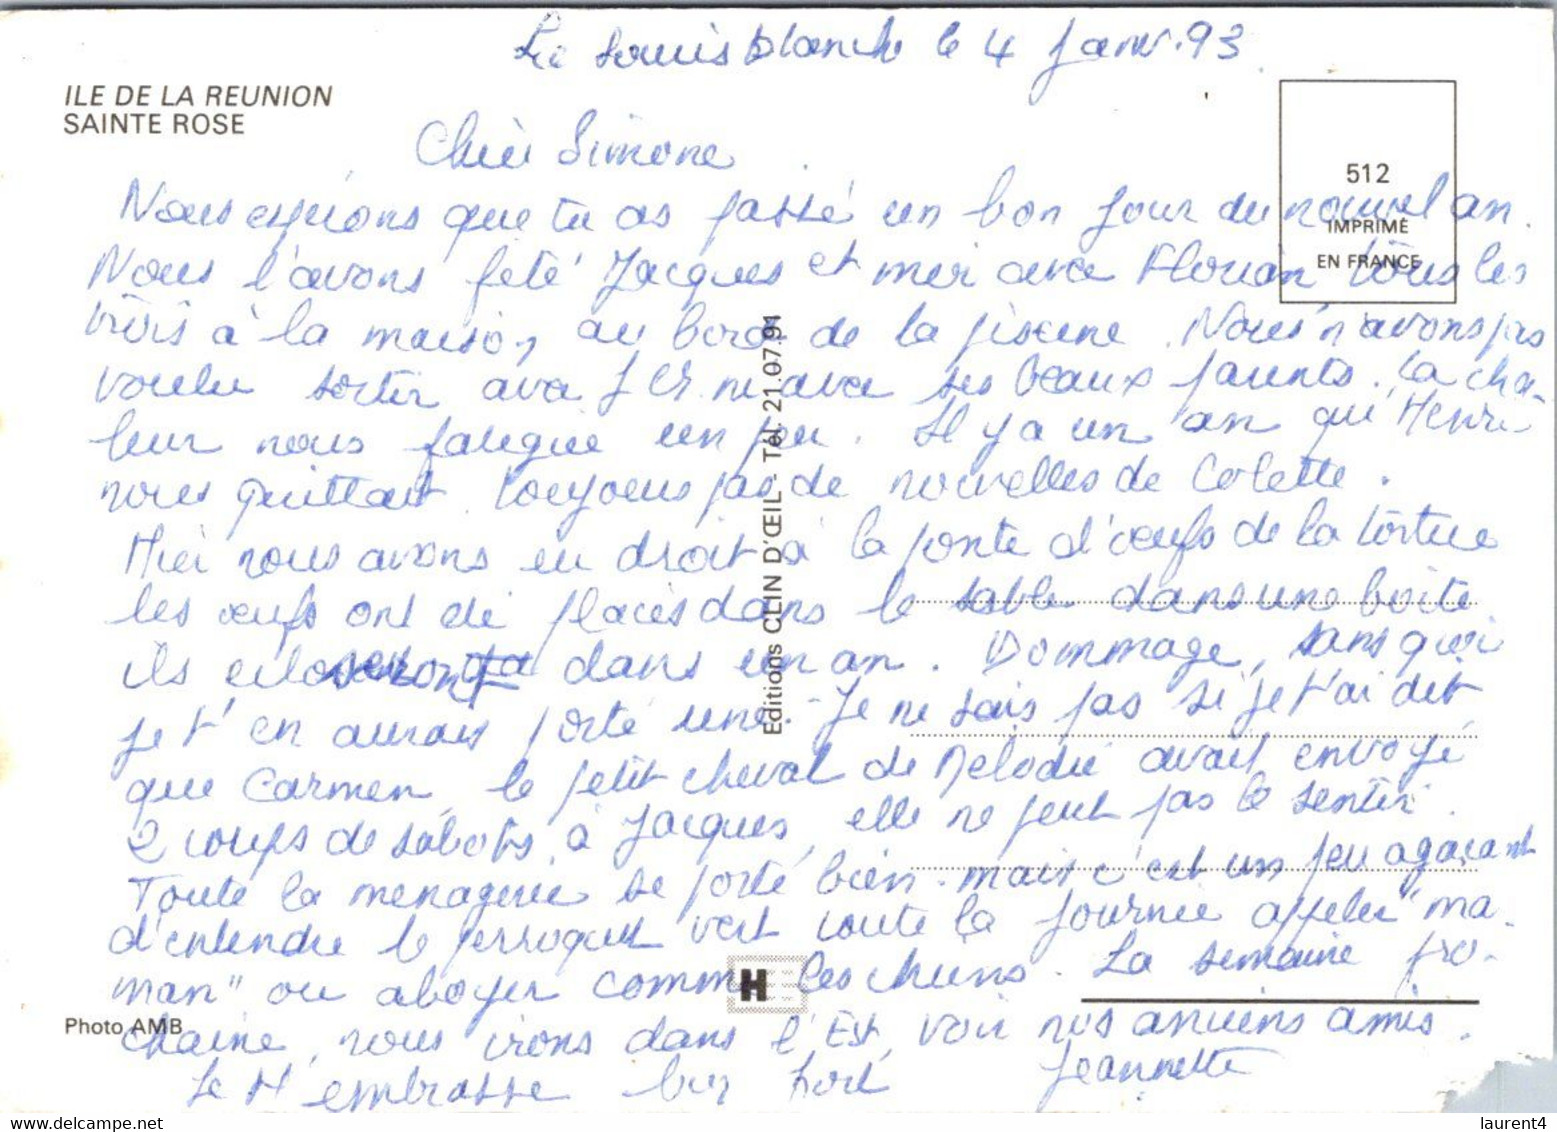 Le Louis blanche le 4 Janv. 93
ILE DE LA REUNION
SAINTE ROSE
Chère Simone
512
IMPRIMÉ
EN FRANCE
Nous espérons que tu as passé un bon jour du nouvel an.
Nous l'avons fêté Jacques et moi avec Florian tous les
trois à la maison, au bord de la piscine. Nous n'avons pas
voulu sortir avec ni avec ses beaux parents. La cha-
leur nous fatigue un peu. Il y a un an qu'Henri
nous quittait. toujours pas de nouvelles de Colette.
Hier nous avons eu droit à la ponte d'œufs de la tortue
les œufs ont été placés dans le sable dans une boite
ils dans un an. Dommage, sans quoi
je t'en aurais porté une. - Je ne sais pas si je t'ai dit
que Carmen, le petit cheval de Mélodie avait envoyé
2 coups de sabots, à Jacques, elle ne peut pas le sentir.
Toute la ménagerie se porte bien. mais c'est un peu agaçant
d'entendre le perroquet vert toute la journée appeler "ma-
man" ou aboyer comme les chiens. La semaine pro-
chaine, nous irons dans l'Est, voir nos anciens amis.
Je t'embrasse bien fort Jeannette
Editions CLIN D'ŒIL - Tél. 21.07.91
H
Photo AMB
laurent4